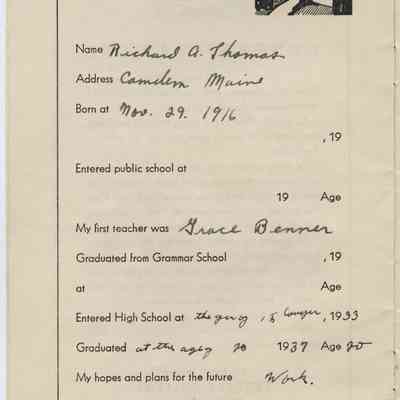 Name Richard A. Thomas
Address Camden Maine
Born at Nov. 29. 1916
, 19
Entered public school at
19 Age
My first teacher was Grace Benner
Graduated from Grammar School , 19
at Age
Entered High School at the age , 1933
Graduated at the age 20 1937 Age 20
My hopes and plans for the future Work.